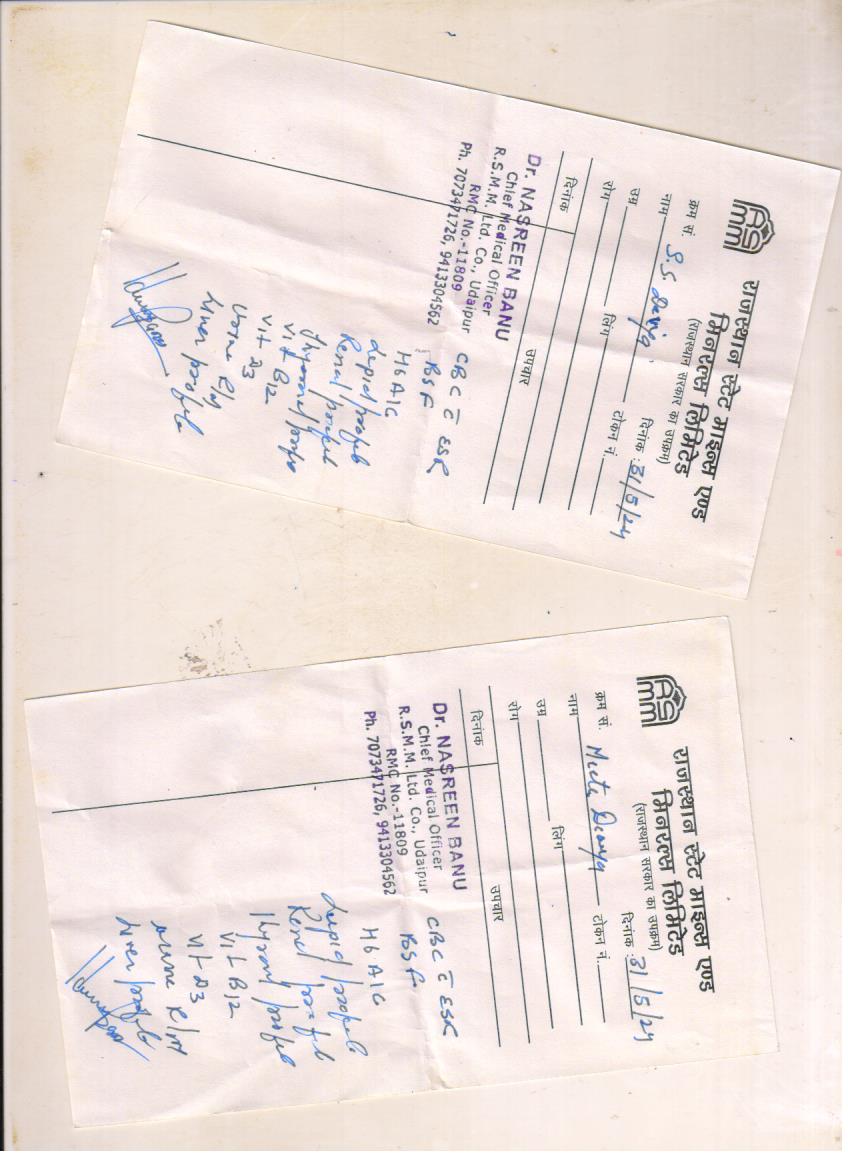 RSMM
राजस्थान स्टेट माइन्स एण्ड
मिनरल्स लिमिटेड
(राजस्थान सरकार का उपक्रम)
क्रम सं.
दिनांक : 31/5/24
नाम S.S
टोकन नं.
उम्र
लिंग
रोग
दिनांक
उपचार
Dr. NASREEN BANU
Chief Medical Officer
R.S.M.M. Ltd. Co., Udaipur
RMC No.-11809
Ph. 7073471726, 9413304562
CBC c̄ ESR
BSF
HbA1C
Lipid profile
Renal profile
Thyroid profile
Vit B12
Vit D3
Urine R/M
Liver profile
RSMM
राजस्थान स्टेट माइन्स एण्ड
मिनरल्स लिमिटेड
(राजस्थान सरकार का उपक्रम)
क्रम सं.
दिनांक : 31/5/24
नाम
टोकन नं.
उम्र
लिंग
रोग
दिनांक
उपचार
Dr. NASREEN BANU
Chief Medical Officer
R.S.M.M. Ltd. Co., Udaipur
RMC No.-11809
Ph. 7073471726, 9413304562
CBC c̄ ESR
BSF
HbA1C
Lipid profile
Renal profile
Thyroid profile
Vit B12
Vit D3
Urine R/M
Liver profile